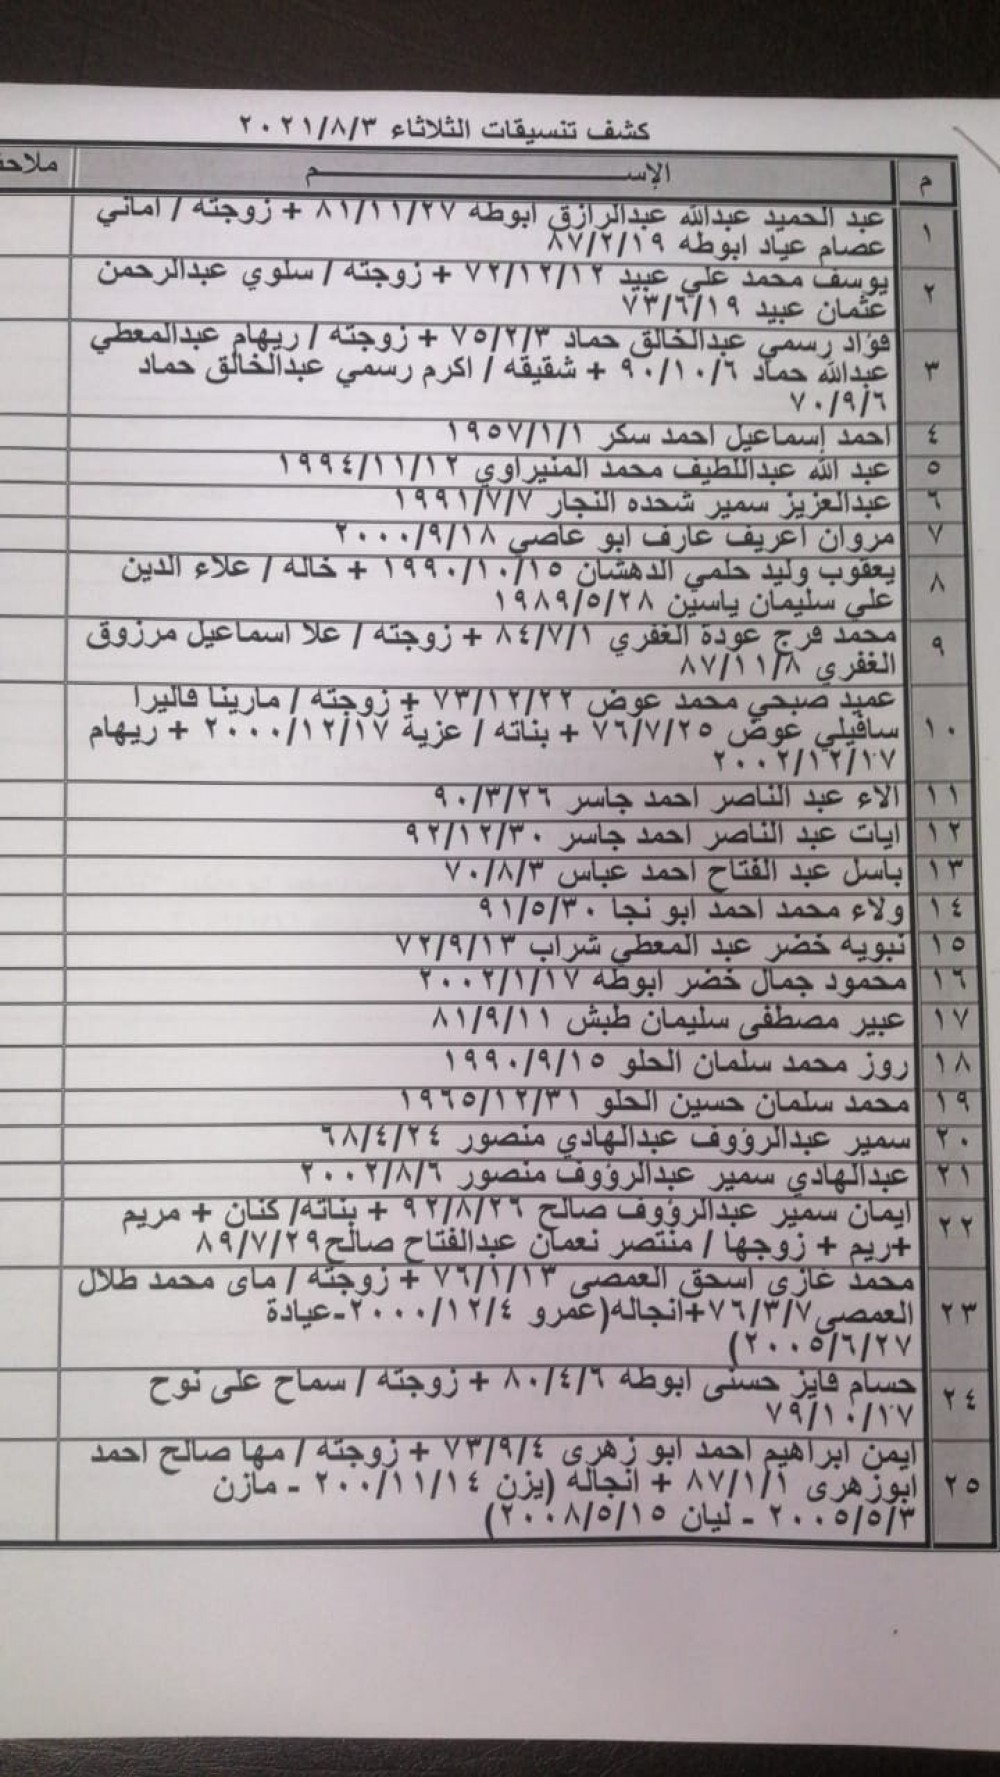 كشف تنسيقات الثلاثاء ٢٠٢١/٨/٣
م الإســـــــم
١ عبد الحميد عبدالله عبدالرازق ابوطه ٨١/١١/٢٧ + زوجته / اماني
عصام عياد ابوطه ٨٧/٢/١٩
٢ يوسف محمد علي عبيد ٧٢/١٢/١٢ + زوجته / سلوي عبدالرحمن
عثمان عبيد ٧٣/٦/١٩
٣ فؤاد رسمي عبدالخالق حماد ٧٥/٢/٣ + زوجته / ريهام عبدالمعطي
عبدالله حماد ٩٠/١٠/٦ + شقيقه / اكرم رسمي عبدالخالق حماد
٧٠/٩/٦
٤ احمد إسماعيل احمد سكر ١٩٥٧/١/١
٥ عبد الله عبداللطيف محمد المنيراوي ١٩٩٤/١١/١٢
٦ عبدالعزيز سمير شحده النجار ١٩٩١/٧/٧
٧ مروان اعريف عارف ابو عاصي ٢٠٠٠/٩/١٨
٨ يعقوب وليد حلمي الدهشان ١٩٩٠/١٠/١٥ + خاله / علاء الدين
علي سليمان ياسين ١٩٨٩/٥/٢٨
٩ محمد فرج عودة الغفري ٨٤/٧/١ + زوجته / علا اسماعيل مرزوق
الغفري ٨٧/١١/٨
١٠ عميد صبحي محمد عوض ٧٣/١٢/٢٢ + زوجته / مارينا فاليرا
سافيلي عوض ٧٦/٧/٢٥ + بناته / عزية ٢٠٠٠/١٢/١٧ + ريهام
٢٠٠٢/١٢/١٧
١١ الاء عبد الناصر احمد جاسر ٩٠/٣/٢٦
١٢ ايات عبد الناصر احمد جاسر ٩٢/١٢/٣٠
١٣ باسل عبد الفتاح احمد عباس ٧٠/٨/٣
١٤ ولاء محمد احمد ابو نجا ٩١/٥/٣٠
١٥ نبويه خضر عبد المعطي شراب ٧٢/٩/١٣
١٦ محمود جمال خضر ابوطه ٢٠٠٢/١/١٧
١٧ عبير مصطفى سليمان طبش ٨١/٩/١١
١٨ روز محمد سلمان الحلو ١٩٩٠/٩/١٥
١٩ محمد سلمان حسين الحلو ١٩٦٥/١٢/٣١
٢٠ سمير عبدالرؤوف عبدالهادي منصور ٦٨/٤/٢٤
٢١ عبدالهادي سمير عبدالرؤوف منصور ٢٠٠٢/٨/٦
٢٢ ايمان سمير عبدالرؤوف صالح ٩٢/٨/٢٦ + بناته/ كنان + مريم
+ريم + زوجها / منتصر نعمان عبدالفتاح صالح٨٩/٧/٢٩
٢٣ محمد غازى اسحق العمصى ٧٦/١/١٣ + زوجته / ماى محمد طلال
العمصى٧٦/٣/٧+انجاله(عمرو ٢٠٠٠/١٢/٤-عيادة
٢٠٠٥/٦/٢٧)
٢٤ حسام فايز حسنى ابوطه ٨٠/٤/٦ + زوجته / سماح على نوح
٧٩/١٠/١٧
٢٥ ايمن ابراهيم احمد ابو زهرى ٧٣/٩/٤ + زوجته / مها صالح احمد
ابوزهرى ٨٧/١/١ + انجاله (يزن ٢٠٠/١١/١٤ - مازن
٢٠٠٥/٥/٣ - ليان ٢٠٠٨/٥/١٥)